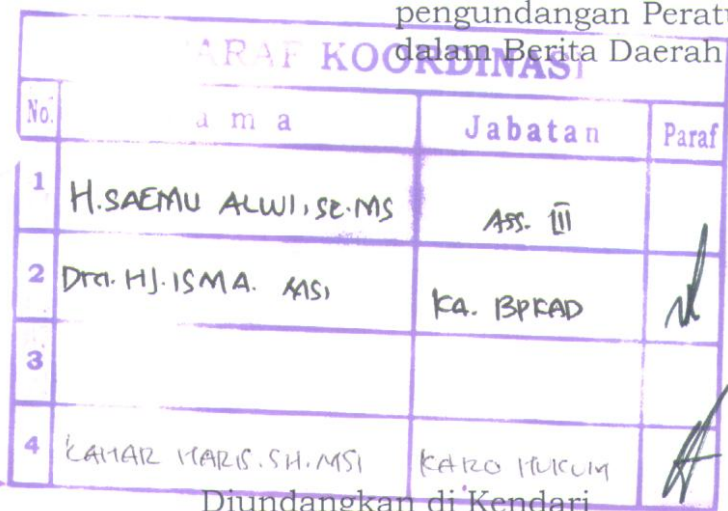 pengundangan Perat
dalam Berita Daerah
ARAF KOORDINASI
No. a m a Jabatan Paraf
1 H. SAEMU ALWI, SE. MS Ass. III
2 Dra. HJ. ISMA. MSi Ka. BPKAD
3
4 KAHAR HARIS. SH. MSI KARO HUKUM
Diundangkan di Kendari